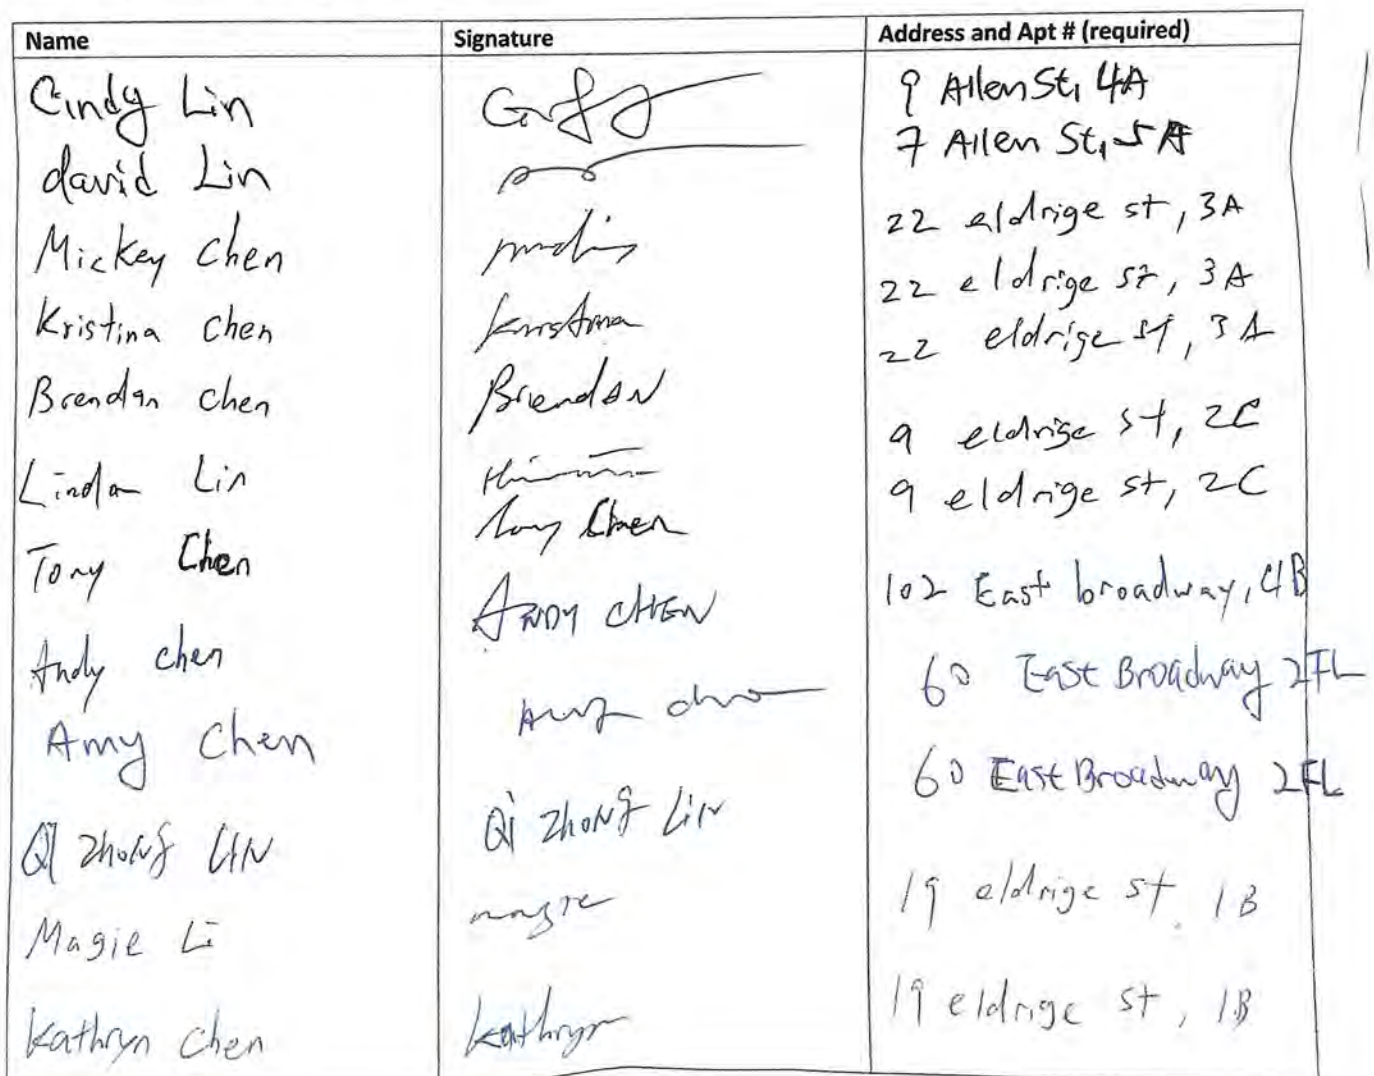 Name Signature Address and Apt # (required)
Cindy Lin 9 Allen St, 4A
david Lin 7 Allen St, 5A
Mickey Chen 22 eldrige st, 3A
Kristina Chen Kristina 22 eldrige st, 3A
Brendan Chen Brendan 22 eldrige st, 3A
Linda Lin 9 eldrige st, 2C
Tony Chen Tony Chen 9 eldrige st, 2C
Andy Chen ANDY CHEN 102 East broadway, 4B
Amy Chen Amy Chen 60 East Broadway 2FL
QI ZHONG LIN Qi ZHONG LiN 60 East Broadway 2FL
Magie Li magie 19 eldrige st, 1B
Kathryn Chen Kathryn 19 eldrige st, 1B